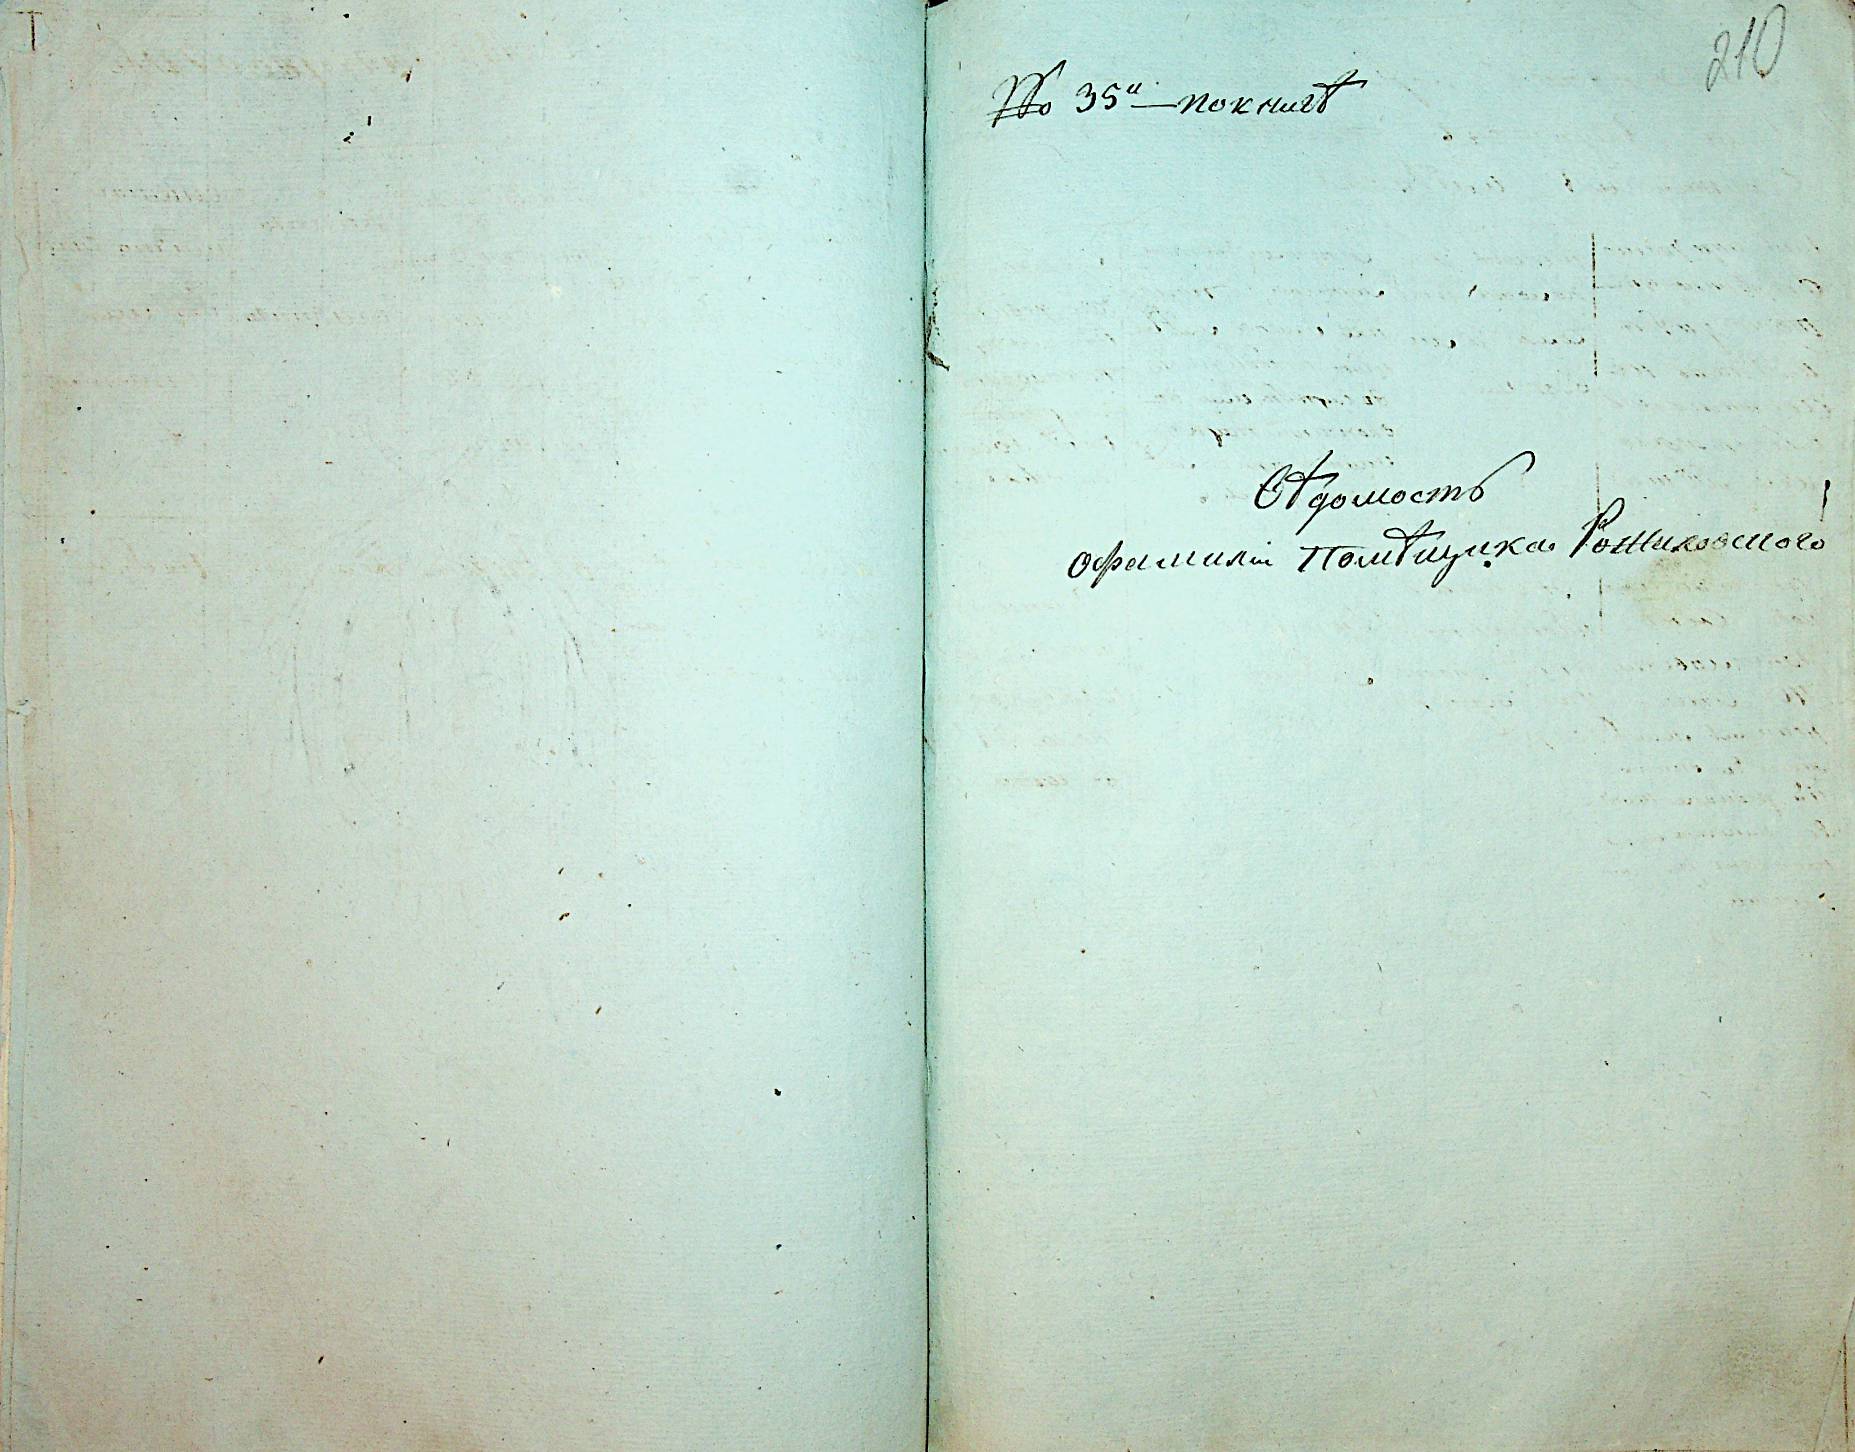 210
№ 35й — по книгѣ
Вѣдомость
о фамиліи Помѣщика Рожиловского